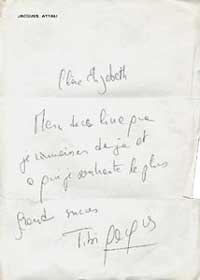 JACQUES ATTALI
Chère Elizabeth
Merci de ce livre que
je connaissais déjà et
a qui je souhaite le plus
grand succès